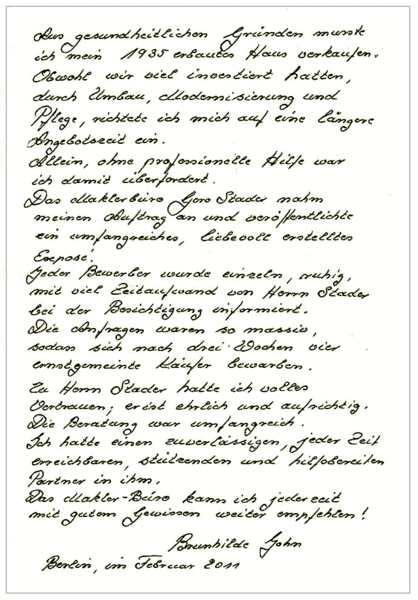 Aus gesundheitlichen Gründen musste
ich mein 1935 erbautes Haus verkaufen.
Obwohl wir viel investiert hatten,
durch Umbau, Modernisierung und
Pflege, richtete ich mich auf eine längere
Angebotszeit ein.
Allein, ohne professionelle Hilfe war
ich damit überfordert.
Das Maklerbüro Gero Stader nahm
meinen Auftrag an und veröffentlichte
ein umfangreiches, liebevoll erstelltes
Exposé.
Jeder Bewerber wurde einzeln, ruhig,
mit viel Zeitaufwand von Herrn Stader
bei der Besichtigung informiert.
Die Anfragen waren so massiv,
sodass sich nach drei Wochen vier
ernstgemeinte Käufer bewarben.
Zu Herrn Stader hatte ich volles
Vertrauen; er ist ehrlich und aufrichtig.
Die Beratung war umfangreich.
Ich hatte einen zuverlässigen, jeder Zeit
erreichbaren, stützenden und hilfsbereiten
Partner in ihm.
Das Makler-Büro kann ich jederzeit
mit gutem Gewissen weiter empfehlen!
Brunhilde Gohn
Berlin, im Februar 2011